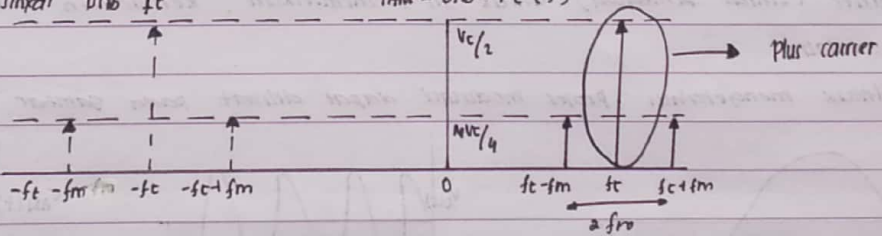 Vc/2
Plus carrier
MVC/4
-ft -fm -fc -fc+fm 0 fc-fm fc fc+fm
2 fm